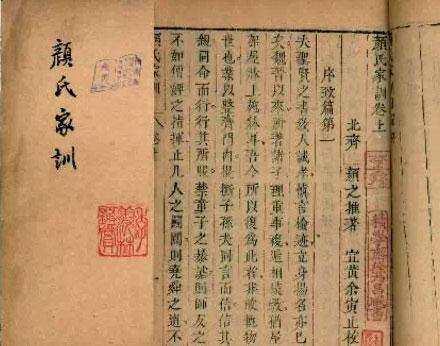 顏氏家訓卷上
北齊 顏之推著 宜黃余寅止校
序致篇第一
夫聖賢之書教人誠孝慎言檢迹立身揚名亦已
矣魏晉以來所著諸子理重事複遞相模斆猶屋
架屋牀上施牀耳吾今所以復為此者非敢軌物
世也業以整齊門內提撕子孫夫同言而信信其
親同命而行行其所服禁童子之暴謔則師友之
不如傅婢之指揮止凡人之鬭鬩則堯舜之道不
顏氏家訓
顏氏家訓